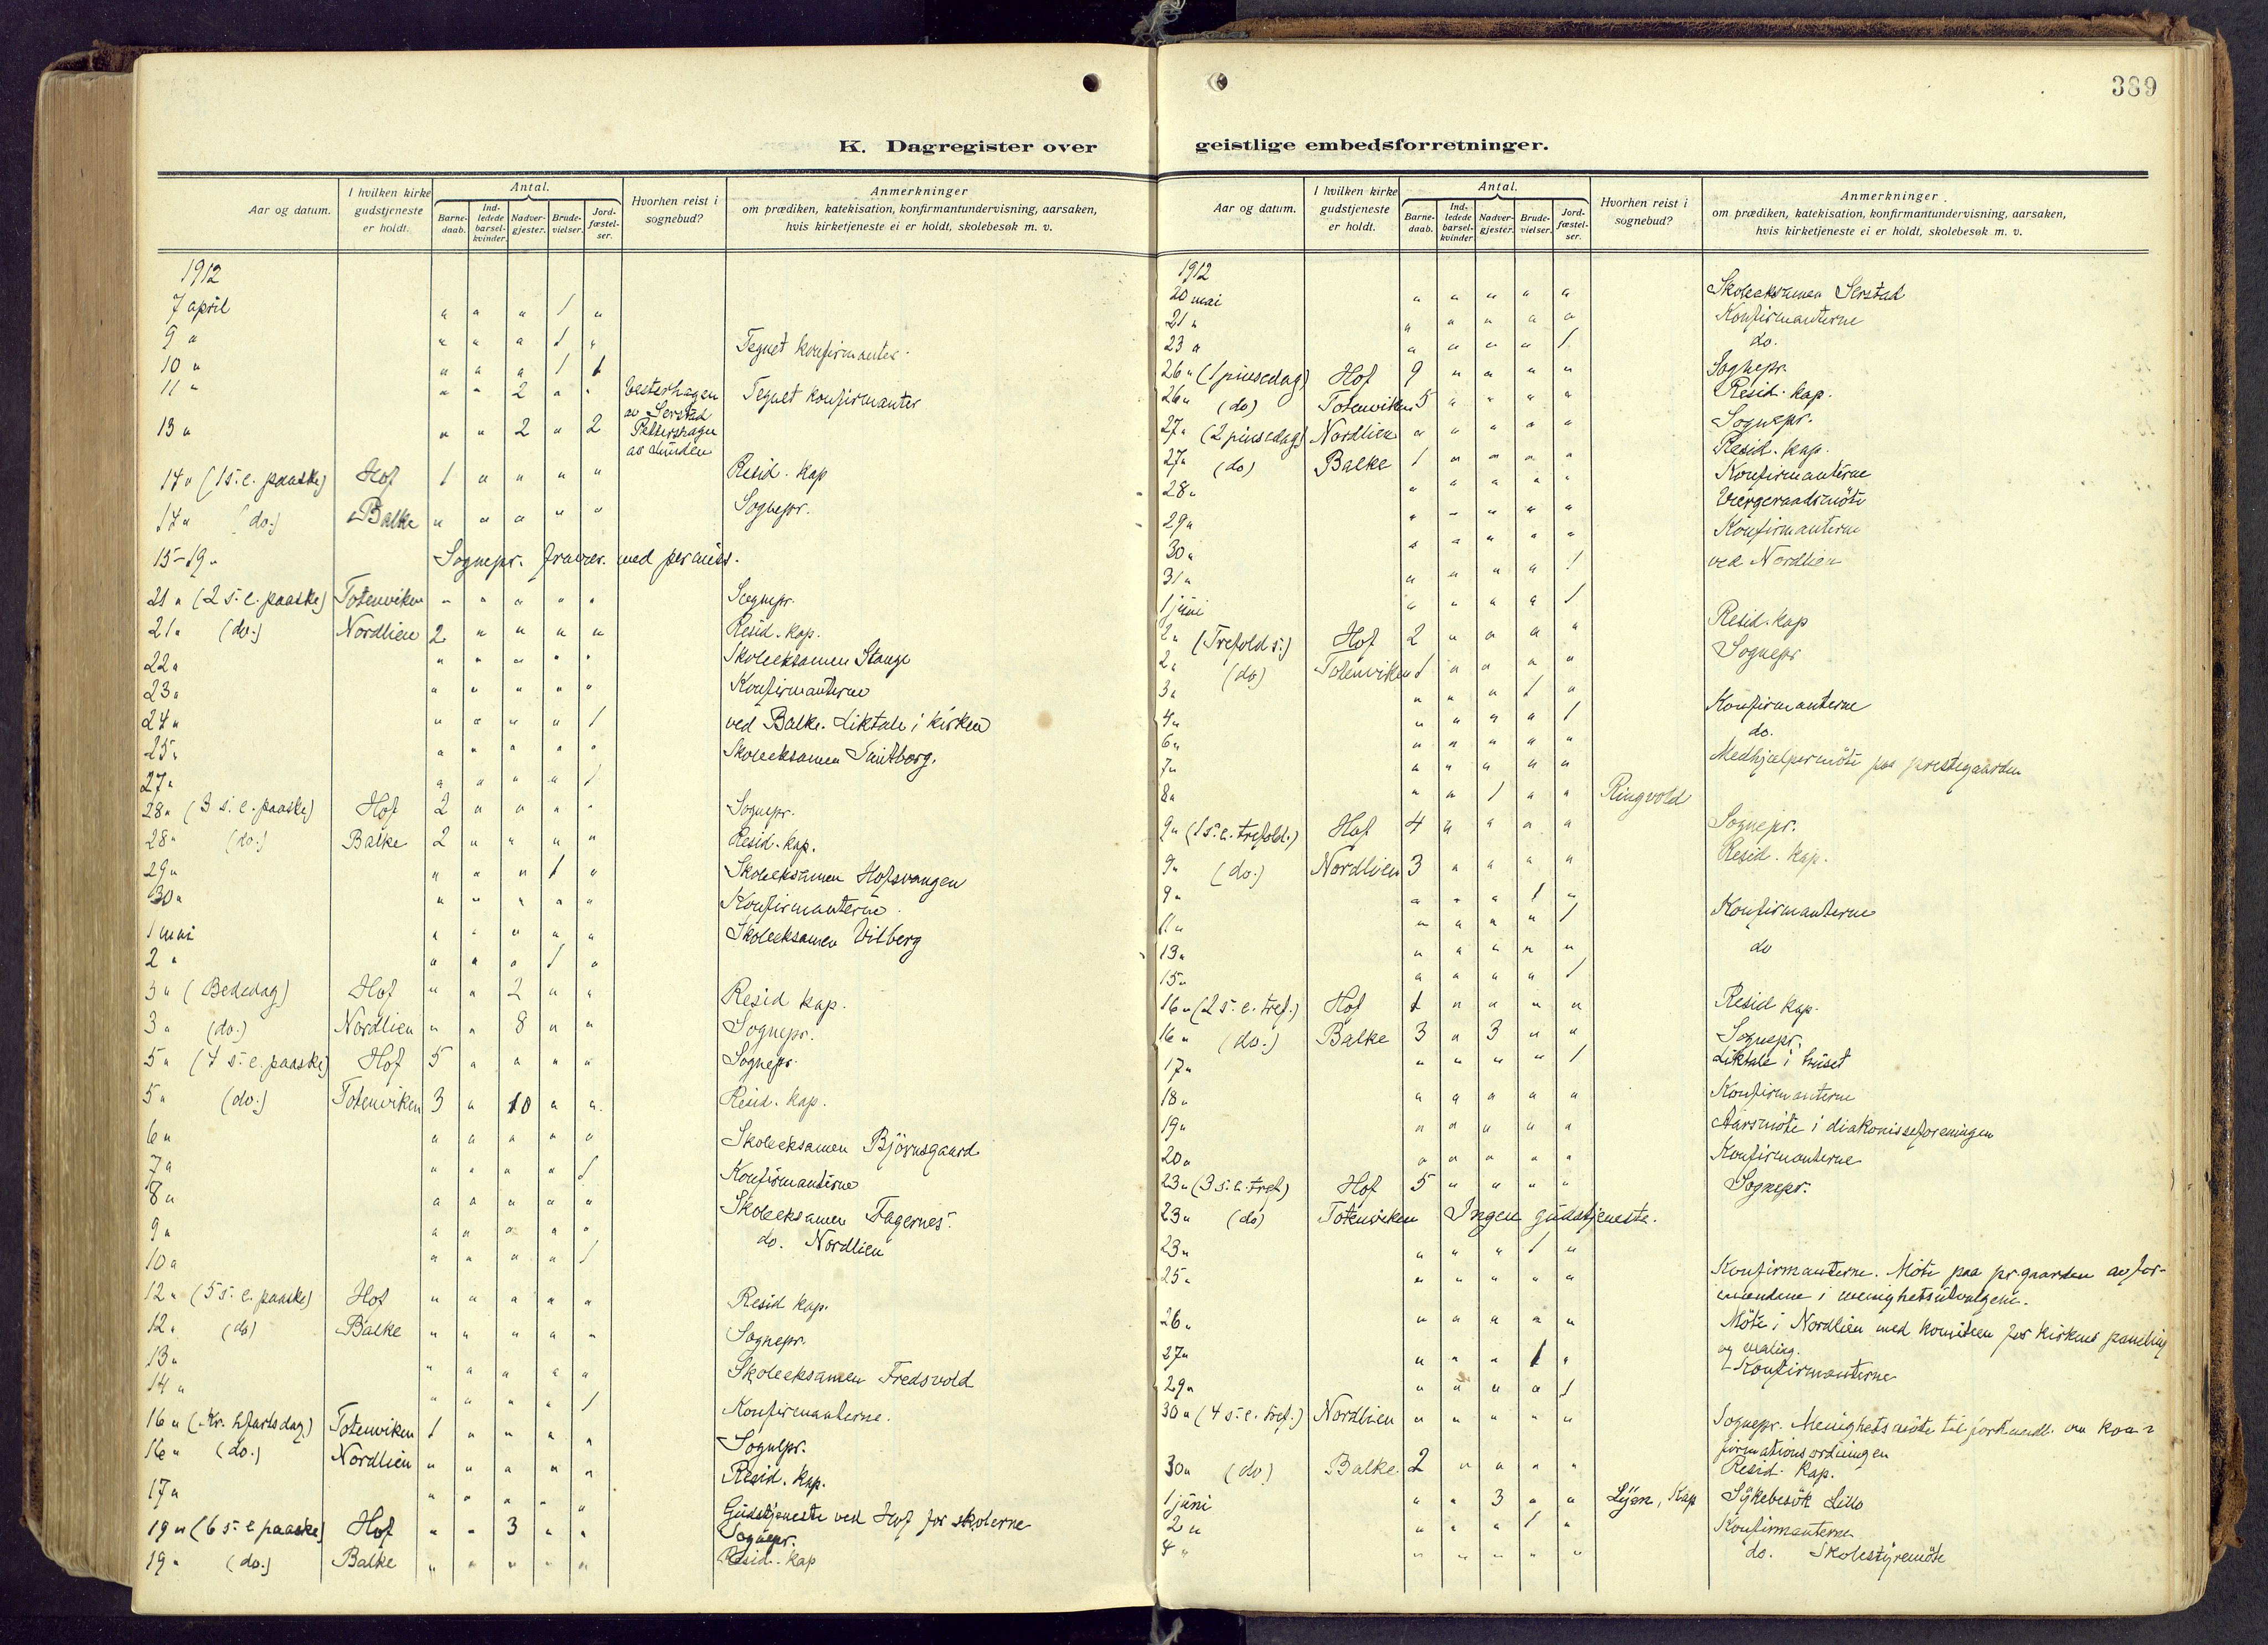 389
K. Dagregister over geistlige embedsforretninger.
Aar og datum. I hvilken kirke gudstjeneste er holdt. Antal. Barne-daab. Ind-ledede barsel-kvinder. Nadver-gjester. Brude-vielser. Jord-fæstel-ser. Hvorhen reist i sognebud? Anmerkninger om prædiken, katekisation, konfirmantundervisning, aarsaken, hvis kirketjeneste ei er holdt, skolebesøk m. v.
1912
7 april " " " 1 "
9 " " " " 1 " Tegnet konfirmanter.
10 " " " " 1 1
11 " " " 2 " " Vesterhagen av Serstad Tegnet konfirmanter
13 " " " 2 " 2 Pettershagen av Lunden
14 " (1 s. e. paaske) Hof 1 " " " " Resid. kap
14 " (do.) Balke " " " " " Sognepr.
15-19 " Sognepr. fravær. med permiss.
21 " (2 s. e. paaske) Totenviken " " " " " Sognepr.
21 " (do.) Nordlien 2 " " " " Resid. kap.
22 " " " " " " Skoleeksamen Stange
23 " " " " " " Konfirmanterne
24 " " " " " 1 ved Balke. Liktale i kirken
25 " " " " " " Skoleeksamen
27 " " " " " 1
28 " (3 s. e. paaske) Hof 2 " " " " Sognepr.
28 " (do.) Balke 2 " " " " Resid. kap.
29 " " " " 1 " Skoleeksamen Hofsvangen
30 " " " " " " Konfirmanterne.
1 mai " " " " " Skoleeksamen Vilberg
2 " " " " 1 "
3 " (Bededag) Hof " " 2 " " Resid kap.
3 " (do.) Nordlien " " 8 " " Sognepr.
5 " (4 s. e. paaske) Hof 5 " " " " Sognepr.
5 " (do.) Totenviken 3 " 10 " " Resid. kap.
6 " " " " " " Skoleeksamen Björnsgaard
7 " " " " " 1 Konfirmanterne
8 " " " " " " Skoleeksamen Fagernes.
9 " " " " " " do. Nordlien
10 " " " " " 1
12 " (5 s. e. paaske) Hof " " " " " Resid kap.
12 " (do) Balke " " " " " Sognepr.
13 " " " " " " Skoleeksamen Fredsvold
14 " " " " " 1 Konfirmanterne.
16 " (Kr. hfartsdag) Totenviken 1 " " " " Sognepr.
16 " (do.) Nordlien " " " " " Resid. kap.
17 " " " " " " Gudstjeneste ved Hof for skolerne
19 " (6 s. e paaske) Hof " " 3 " " Sognepr.
19 " (do.) Balke " " " " " Resid. kap
Aar og datum. I hvilken kirke gudstjeneste er holdt. Antal. Barne-daab. Ind-ledede barsel-kvinder Nadver-gjester. Brude-vielser. Jord-fæstel-ser. Hvorhen reist i sognebud? Anmerkninger om prædiken, katekisation, konfirmantundervisning, aarsaken, hvis kirketjeneste ei er holdt, skolebesøk m. v.
1912
20 mai " " " " " Skoleeksamen Serstad
21 " " " " " " Konfirmanterne
23 " " " " " 1 do.
26 " (1 pinsedag) Hof 9 " " " " Sognepr.
26 " (do) Totenviken 5 " " " " Resid. kap.
27 " (2 pinsedag) Nordlien " " " " " Sognepr.
27 " (do) Balke 1 " " " " Resid. kap.
28 " " " " " " Konfirmanterne
29 " " " " " " Vergeraadsmöte
30 " " " " " " Konfirmanterne
31 " " " " " 1 ved Nordlien
1 juni " " " " 1
2 " (Trefold s.) Hof 2 " " " " Resid. kap
2 " (do) Totenviken 1 " " " " Sognepr
3 " " " " 1 "
4 " " " " " 1 Konfirmanterne
6 " " " " " " do.
7 " " " " " " Medhjælpermöte paa prestegaarden
8 " " " 1 " " Ringvold
9 " (1 s. e. trefold.) Hof 4 " " " " Sognepr.
9 " (do.) Nordlien 3 " " " " Resid. kap.
9 " " " " 1 "
11 " " " " " 1 Konfirmanterne
13 " " " " " " do
15 " " " " " 1
16 " (2 s. e. tref.) Hof 1 " " " " Resid kap.
16 " (do.) Balke 3 " 3 " " Sognepr.
17 " " " " " 1 Liktale i huset
18 " " " " " " Konfirmanterne
19 " " " " " " Aarsmöte i diakonisseforeningen
20 " " " " " " Konfirmanterne
23 " (3 s. e. tref) Hof 5 " " " " Sognepr.
23 " (do) Totenviken Ingen gudstjeneste.
23 " " " " 1 "
25 " " " " " " Konfirmanterne. Möte paa pr.gaarden av for-
mændene i menighetsutvalgene.
26 " " " " " " Möte i Nordlien med komiteen for kirkens paneling
og maling.
27 " " " " 1 " Konfirmanterne
29 " " " " " 1
30 " (4 s. e. tref.) Nordlien " " " " " Sognepr. Menighetsmöte til forhandl. om kon-
firmationsordningen
30 " (do) Balke 2 " " " " Resid. kap.
1 juni " " 3 " " Sykebesök Lillo
2 " " " " 1 " Konfirmanterne
4 " " " " " " do. Skolestyremöte